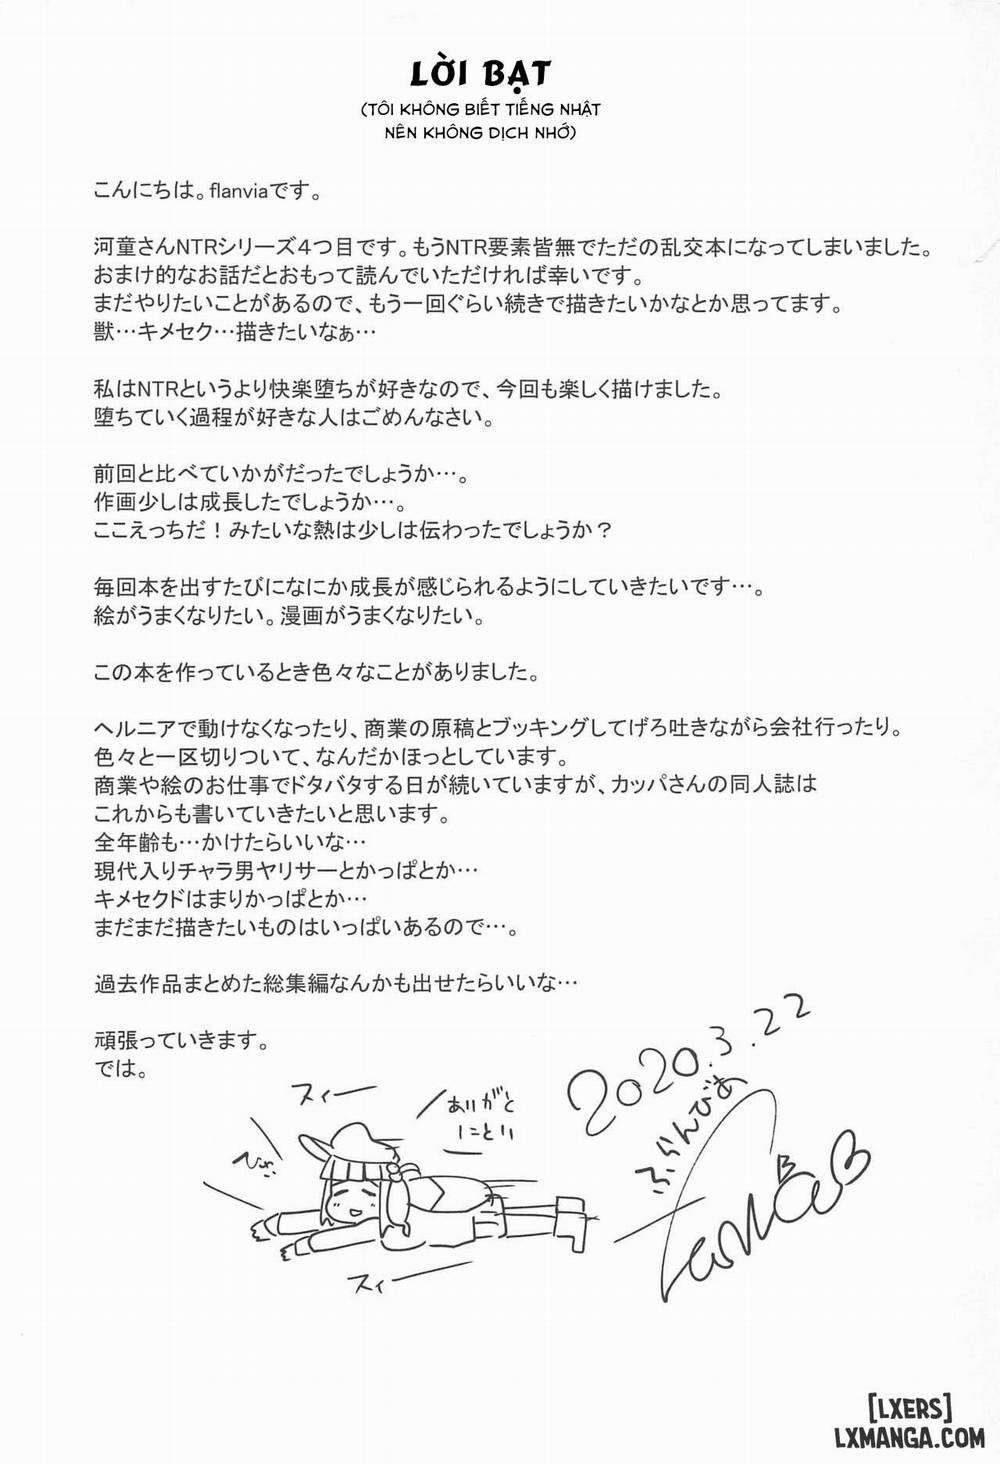 LỜI BẠT
(TÔI KHÔNG BIẾT TIẾNG NHẬT
NÊN KHÔNG DỊCH NHỚ)
こんにちは。flanviaです。
河童さんNTRシリーズ４つ目です。もうNTR要素皆無でただの乱交本になってしまいました。
おまけ的なお話だとおもって読んでいただければ幸いです。
まだやりたいことがあるので、もう一回ぐらい続きで描きたいかなとか思ってます。
獣…キメセク…描きたいなぁ…
私はNTRというより快楽堕ちが好きなので、今回も楽しく描けました。
堕ちていく過程が好きな人はごめんなさい。
前回と比べていかがだったでしょうか…。
作画少しは成長したでしょうか…。
ここえっちだ！みたいな熱は少しは伝わったでしょうか？
毎回本を出すたびになにか成長が感じられるようにしていきたいです…。
絵がうまくなりたい。漫画がうまくなりたい。
この本を作っているとき色々なことがありました。
ヘルニアで動けなくなったり、商業の原稿とブッキングしてげろ吐きながら会社行ったり。
色々と一区切りついて、なんだかほっとしています。
商業や絵のお仕事でドタバタする日が続いていますが、カッパさんの同人誌は
これからも書いていきたいと思います。
全年齢も…かけたらいいな…
現代入りチャラ男ヤリサーとかっぱとか…
キメセクドはまりかっぱとか…
まだまだ描きたいものはいっぱいあるので…。
過去作品まとめた総集編なんかも出せたらいいな…
頑張っていきます。
では。
2020.3.22
ふらんびあ
スィー
ありがと
スィー
[LXERS]
LXMANGA.COM